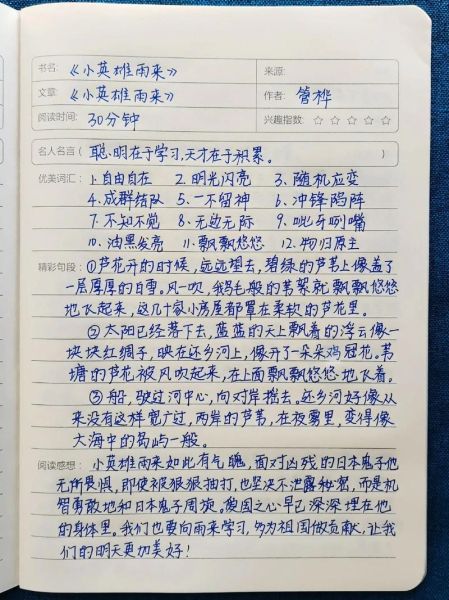 书名: 《小英雄雨来》 来源:
文章: 《小英雄雨来》 作者: 管桦
阅读时间: 30分钟 兴趣指数: ☆ ☆ ☆ ☆ ☆
名人名言( 聪明在于学习,天才在于积累。 )
优美词汇: 1.自由自在 2.明光闪亮 3.随机应变
4.成群结队 5.一不留神 6.冲锋陷阵
7.不知不觉 8.无边无际 9.呲牙咧嘴
10.油黑发亮 11.飘飘悠悠 12.物归原主
精彩句段: ①芦花开的时候,远远望去,碧绿的芦苇上像盖了
一层厚厚的白雪。风一吹,鹅毛般的苇絮就飘飘悠悠
地飞起来,这几十家小房屋都罩在柔软的芦花里。
②太阳已经落下去,蓝蓝的天上飘着的浮云像一
块块红绸子,映在还乡河上,像开了一朵朵鸡冠花。苇
塘的芦花被风吹起来,在上面飘飘悠悠地飞着。
③船,驶过河中心,向对岸摇去。还乡河好像从
来没有这样宽广过,两岸的芦苇,在夜雾里,变得像
大海中的岛屿一般。
阅读感想: 小英雄雨来如此有气魄,面对凶残的日本鬼子他
无所畏惧,即使被狠狠抽打,也坚决不泄露秘密,而是机
智勇敢地和日本鬼子周旋。爱国之心早已深深埋在他
的身体里。我们也要向雨来学习,多为祖国做贡献,让我
们的明天更加美好!